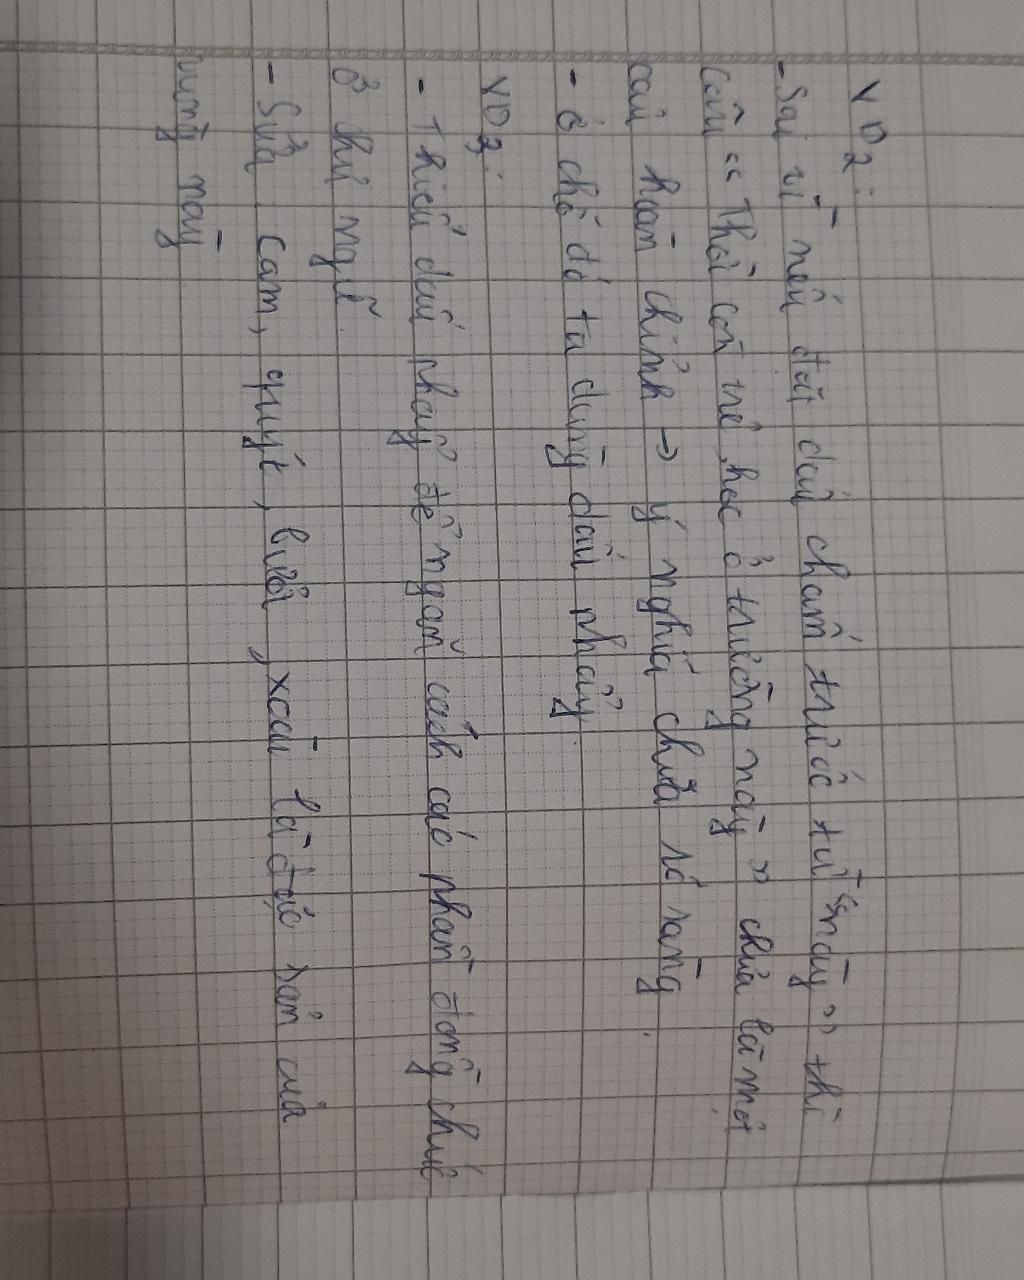 VD2:
- Sai vì nếu đặt dấu chấm trước từ "này" thì
câu "Thời còn trẻ, học ở trường này" chưa là một
câu hoàn chỉnh → ý nghĩa chưa rõ ràng.
- Ở chỗ đó ta dùng dấu phẩy.
VD3:
- Thiếu dấu phẩy để ngăn cách các phần đồng chức
ở chủ ngữ.
- Sửa: Cam, quýt, bưởi, xoài là đặc sản của
vùng này